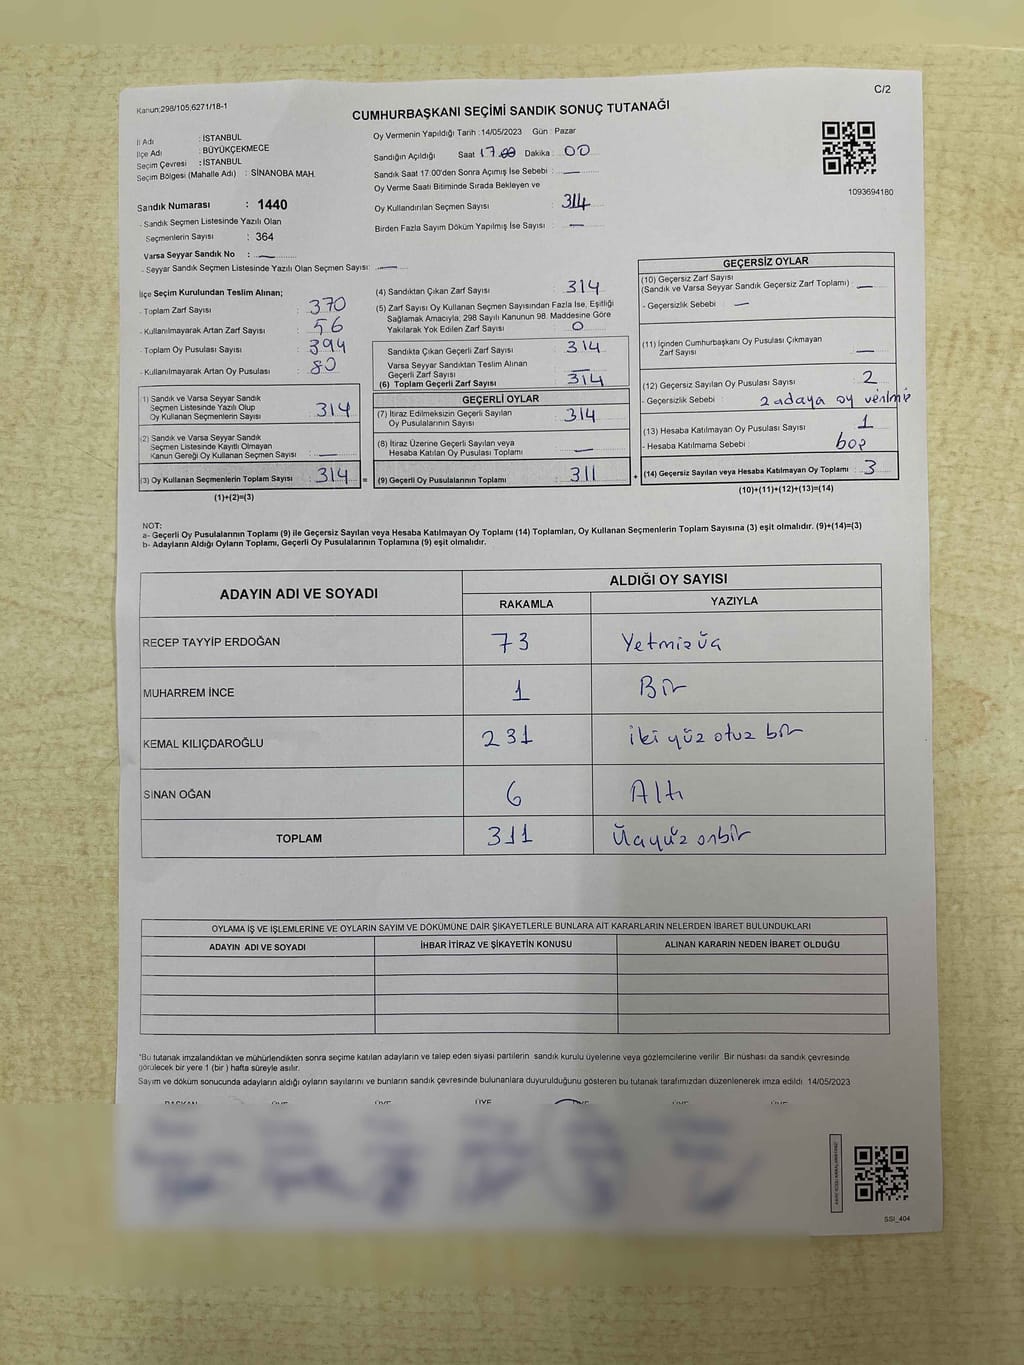 Kanun:298/105,6271/18-1
C/2
CUMHURBAŞKANI SEÇİMİ SANDIK SONUÇ TUTANAĞI
İl Adı : İSTANBUL
İlçe Adı : BÜYÜKÇEKMECE
Seçim Çevresi : İSTANBUL
Seçim Bölgesi (Mahalle Adı) : SİNANOBA MAH.
Sandık Numarası : 1440
- Sandık Seçmen Listesinde Yazılı Olan
Seçmenlerin Sayısı : 364
Varsa Seyyar Sandık No : —
- Seyyar Sandık Seçmen Listesinde Yazılı Olan Seçmen Sayısı: —
Oy Vermenin Yapıldığı Tarih : 14/05/2023 Gün : Pazar
Sandığın Açıldığı Saat 17.00 Dakika : 00
Sandık Saat 17:00'den Sonra Açımış İse Sebebi : —
Oy Verme Saati Bitiminde Sırada Bekleyen ve
Oy Kullandırılan Seçmen Sayısı : 314
Birden Fazla Sayım Döküm Yapılmış İse Sayısı : —
1093694180
İlçe Seçim Kurulundan Teslim Alınan;
- Toplam Zarf Sayısı : 370
- Kullanılmayarak Artan Zarf Sayısı : 56
- Toplam Oy Pusulası Sayısı : 394
- Kullanılmayarak Artan Oy Pusulası : 80
(1) Sandık ve Varsa Seyyar Sandık
Seçmen Listesinde Yazılı Olup
Oy Kullanan Seçmenlerin Sayısı : 314
(2) Sandık ve Varsa Seyyar Sandık
Seçmen Listesinde Kayıtlı Olmayan
Kanun Gereği Oy Kullanan Seçmen Sayısı : —
(3) Oy Kullanan Seçmenlerin Toplam Sayısı : 314 =
(1)+(2)=(3)
(4) Sandıktan Çıkan Zarf Sayısı : 314
(5) Zarf Sayısı Oy Kullanan Seçmen Sayısından Fazla İse, Eşitliği
Sağlamak Amacıyla; 298 Sayılı Kanunun 98. Maddesine Göre
Yakılarak Yok Edilen Zarf Sayısı : 0
Sandıkta Çıkan Geçerli Zarf Sayısı : 314
Varsa Seyyar Sandıktan Teslim Alınan
Geçerli Zarf Sayısı : —
(6) Toplam Geçerli Zarf Sayısı : 314
GEÇERLİ OYLAR
(7) İtiraz Edilmeksizin Geçerli Sayılan
Oy Pusulasının Sayısı : 314
(8) İtiraz Üzerine Geçerli Sayılan veya
Hesaba Katılan Oy Pusulası Toplamı : —
(9) Geçerli Oy Pusulalarının Toplamı : 311 +
GEÇERSİZ OYLAR
(10) Geçersiz Zarf Sayısı
(Sandık ve Varsa Seyyar Sandık Geçersiz Zarf Toplamı) : —
- Geçersizlik Sebebi : —
(11) İçinden Cumhurbaşkanı Oy Pusulası Çıkmayan
Zarf Sayısı : —
(12) Geçersiz Sayılan Oy Pusulası Sayısı : 2
- Geçersizlik Sebebi : 2 adaya oy verilmiş
(13) Hesaba Katılmayan Oy Pusulası Sayısı : 1
- Hesaba Katılmama Sebebi : boş
(14) Geçersiz Sayılan veya Hesaba Katılmayan Oy Toplamı : 3
(10)+(11)+(12)+(13)=(14)
NOT:
a- Geçerli Oy Pusulalarının Toplamı (9) ile Geçersiz Sayılan veya Hesaba Katılmayan Oy Toplamı (14) Toplamları, Oy Kullanan Seçmenlerin Toplam Sayısına (3) eşit olmalıdır. (9)+(14)=(3)
b- Adayların Aldığı Oyların Toplamı, Geçerli Oy Pusulalarının Toplamına (9) eşit olmalıdır.
ADAYIN ADI VE SOYADI
ALDIĞI OY SAYISI
RAKAMLA YAZIYLA
RECEP TAYYİP ERDOĞAN 73 Yetmişüç
MUHARREM İNCE 1 Bir
KEMAL KILIÇDAROĞLU 231 iki yüz otuz bir
SİNAN OĞAN 6 Altı
TOPLAM 311 Üçyüz onbir
OYLAMA İŞ VE İŞLEMLERİNE VE OYLARIN SAYIM VE DÖKÜMÜNE DAİR ŞİKAYETLERLE BUNLARA AİT KARARLARIN NELERDEN İBARET BULUNDUKLARI
ADAYIN ADI VE SOYADI İHBAR İTİRAZ VE ŞİKAYETİN KONUSU ALINAN KARARIN NEDEN İBARET OLDUĞU
*Bu tutanak imzalandıktan ve mühürlendikten sonra seçime katılan adayların ve talep eden siyasi partilerin sandık kurulu üyelerine veya gözlemcilerine verilir. Bir nüshası da sandık çevresinde
görülecek bir yere 1 (bir) hafta süreyle asılır.
Sayım ve döküm sonucunda adayların aldığı oyların sayılarını ve bunların sandık çevresinde bulunanlara duyurulduğunu gösteren bu tutanak tarafımızdan düzenlenerek imza edildi. 14/05/2023
BAŞKAN ÜYE ÜYE ÜYE ÜYE ÜYE ÜYE
SSI_404